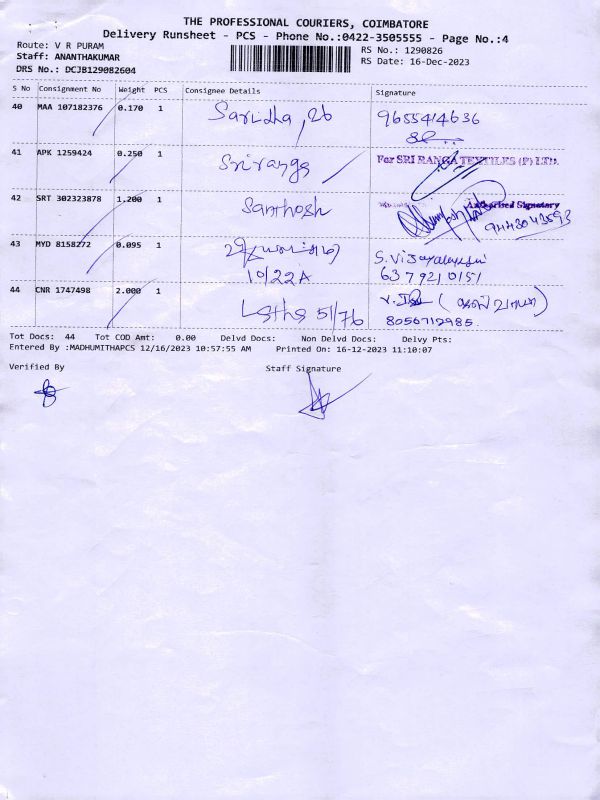 THE PROFESSIONAL COURIERS, COIMBATORE
Delivery Runsheet - PCS - Phone No.:0422-3505555 - Page No.:4
Route: V R PURAM
Staff: ANANTHAKUMAR
DRS No.: DCJB129082604
RS No.: 1290826
RS Date: 16-Dec-2023
S No Consignment No Weight PCS Consignee Details Signature
40 MAA 107182376 0.170 1 Sarudha, 26 9655414636
41 APK 1259424 0.250 1 Sriranga For SRI RANGA TEXTILES (P) LTD.
42 SRT 302323878 1.200 1 Santhosh Authorised Signatory
9443043593
43 MYD 8158272 0.095 1 S. Vijayalakshmi
10/22A 6379210151
44 CNR 1747498 2.000 1 Latha 51/76
8056712985.
Tot Docs: 44 Tot COD Amt: 0.00 Delvd Docs: Non Delvd Docs: Delvy Pts:
Entered By :MADHUMITHAPCS 12/16/2023 10:57:55 AM Printed On: 16-12-2023 11:10:07
Verified By Staff Signature